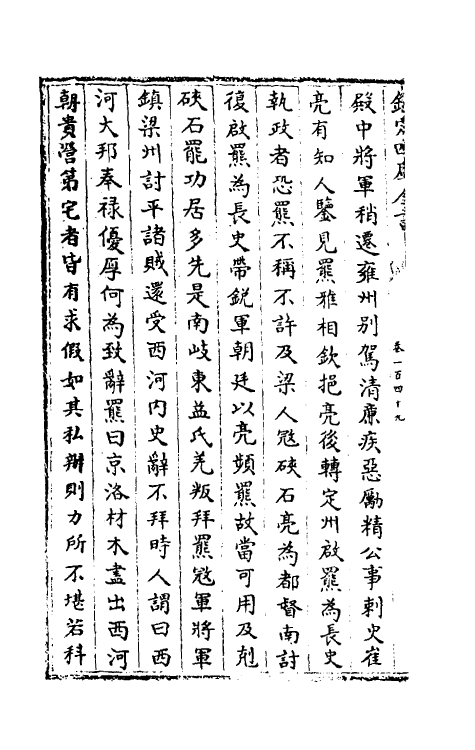 欽定四庫全書
卷一百四十九
殿中將軍稍遷雍州别駕清㢘疾惡勵精公事刺史崔
亮有知人鑒見羆雅相欽挹亮後轉定州啟羆為長史
執政者恐羆不稱不許及梁人冦硤石亮為都督南討
復啟羆為長史帶鋭軍朝廷以亮頻羆故當可用及剋
硤石羆功居多先是南岐東益氐羌叛拜羆冦軍將軍
鎮梁州討平諸賊還受西河内史辭不拜時人謂曰西
河大邦奉禄優厚何為致辭羆曰京洛材木盡出西河
朝貴營第宅者皆有求假如其私辦則力所不堪若科